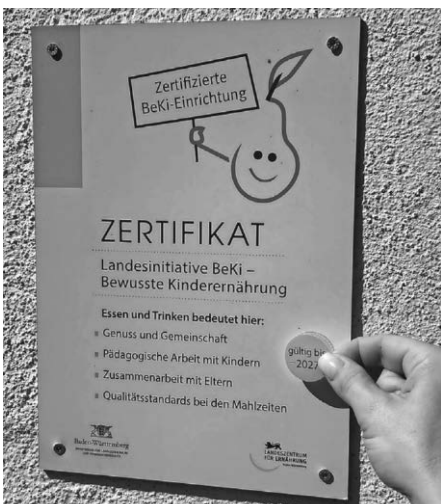 Zertifizierte
BeKi-Einrichtung
ZERTIFIKAT
Landesinitiative BeKi –
Bewusste Kinderernährung
Essen und Trinken bedeutet hier:
Genuss und Gemeinschaft
Pädagogische Arbeit mit Kindern
Zusammenarbeit mit Eltern
Qualitätsstandards bei den Mahlzeiten
gültig bis
2027
Baden-Württemberg
LANDESZENTRUM
FÜR ERNÄHRUNG